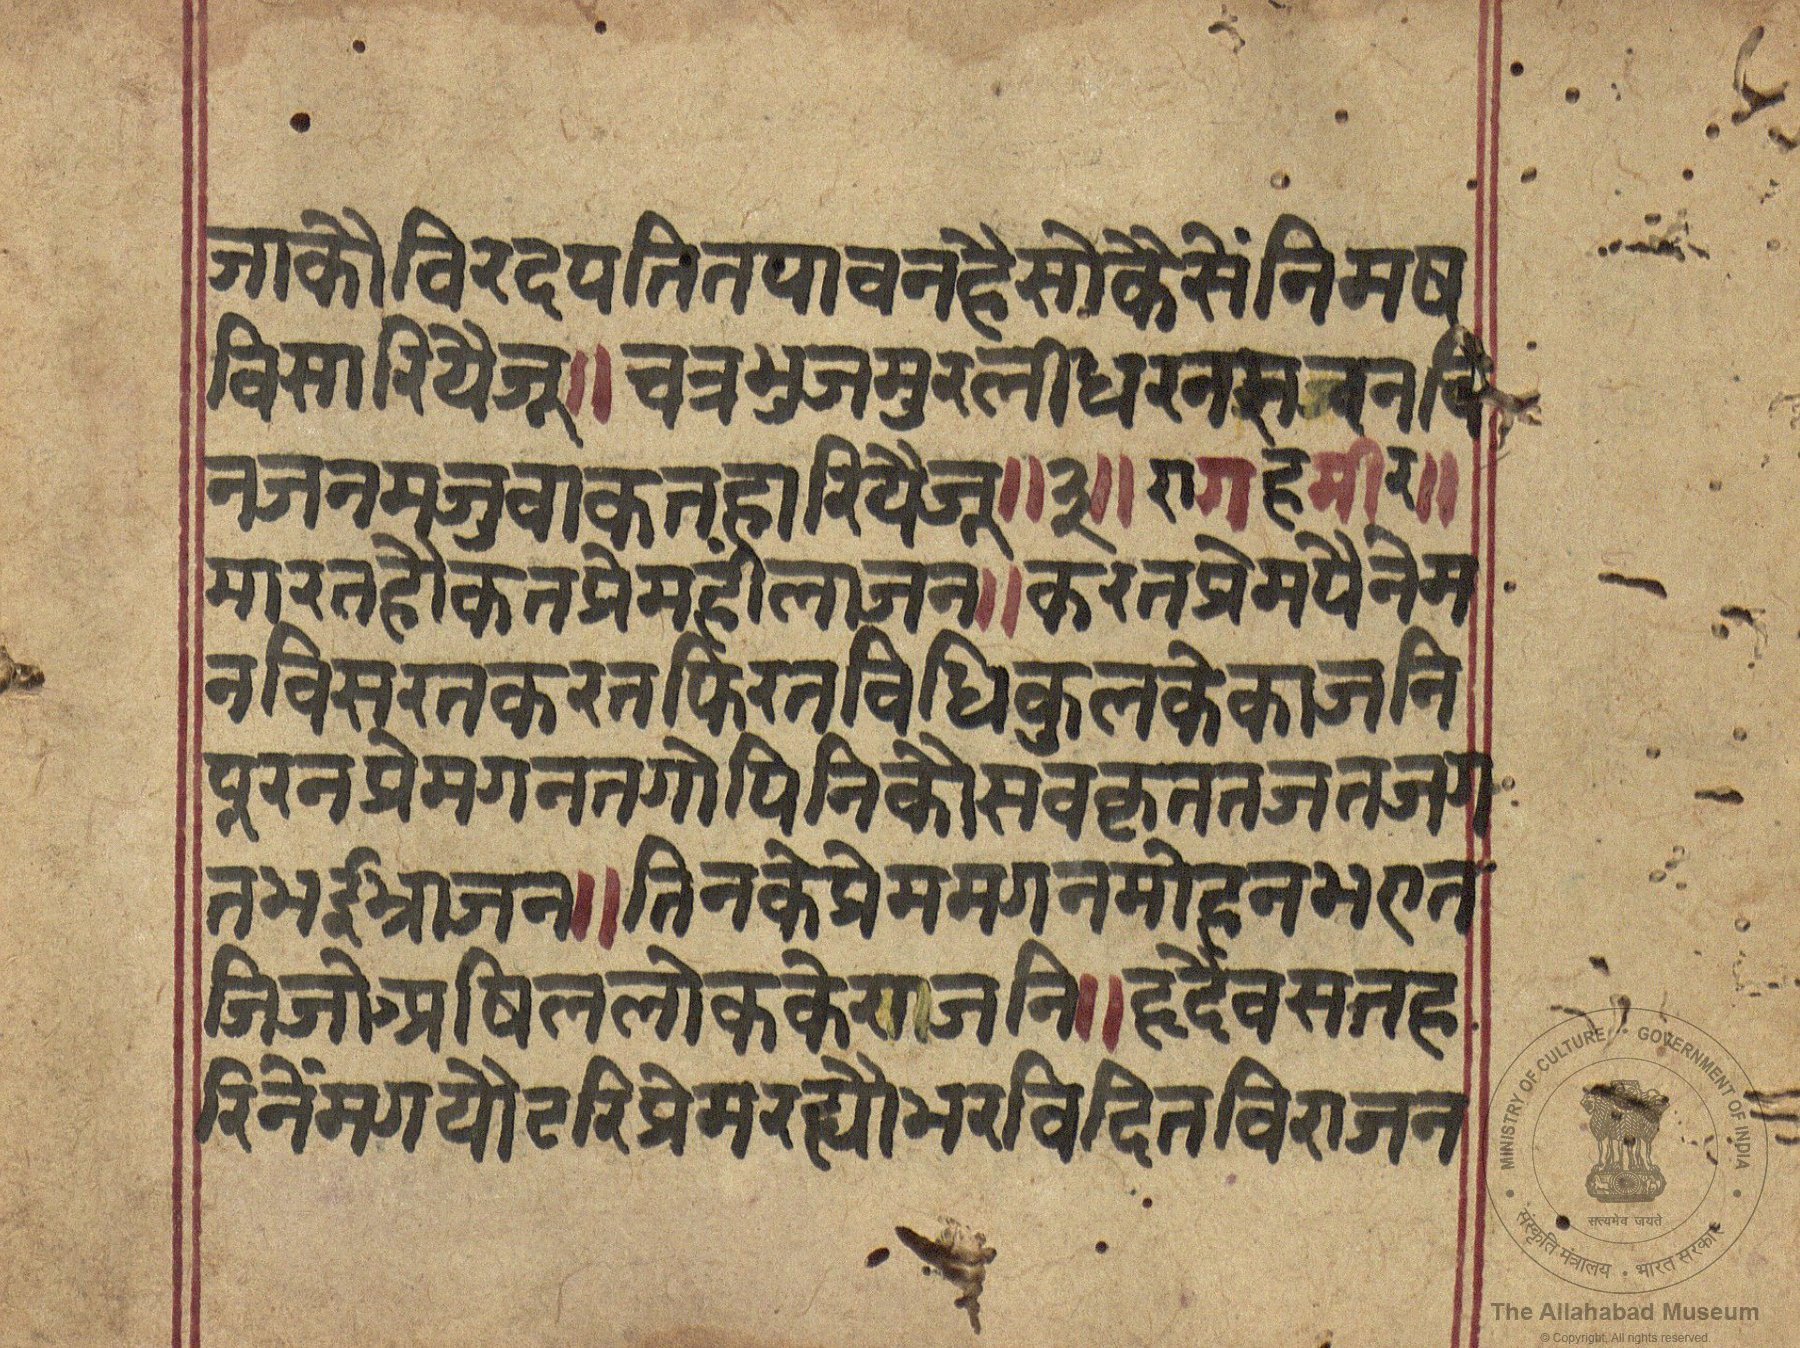 जाकौविरदपतितपावनहैसोकैसेंनिमष
विसारियैजू॥ चत्रभुजमुरलीधरन
नजनमजुवाकतहारियैजू॥३॥ रागहमीर॥
मारतहौकतप्रेमहींलाजन॥करतप्रेमपैनेम
नविसरतकरतफिरतविधिकुलकेकाजनि
पूरनप्रेमगनतगोपिनिकौसवकृततजतजग
तभईभ्राजन॥तिनकेप्रेममगनमोहनभएत
जिजोऽप्रषिललोककेराजनि॥हृदैवसतह
रिनेंमगयौटरिप्रेमरह्यौभरविदितविराजन
MINISTRY OF CULTURE
GOVERNMENT OF INDIA
सत्यमेव जयते
संस्कृति मंत्रालय • भारत सरकार
The Allahabad Museum
© Copyright, All rights reserved.